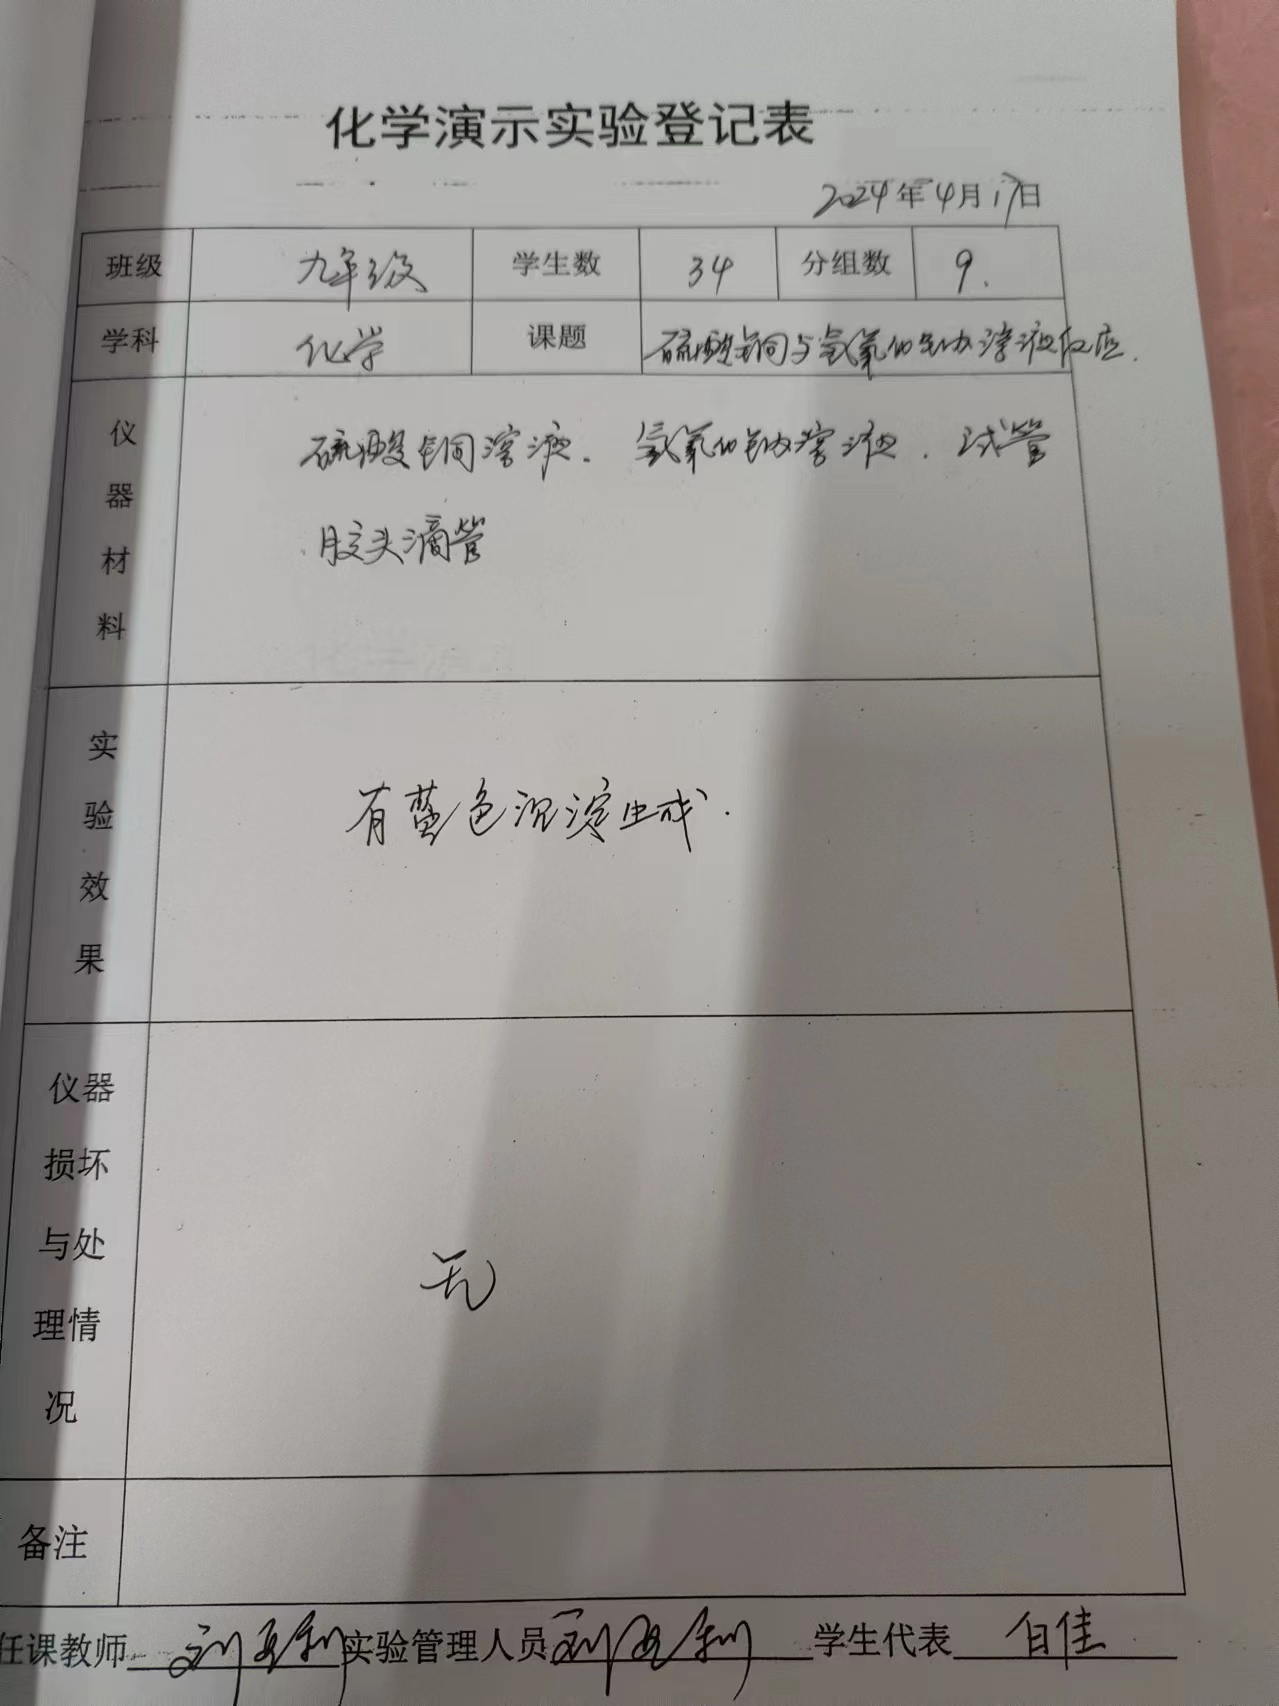 化学演示实验登记表
2024年4月17日
班级 九年级 学生数 34 分组数 9.
学科 化学 课题 硫酸铜与氢氧化钠溶液反应.
仪器材料 硫酸铜溶液. 氢氧化钠溶液. 试管
胶头滴管
实验效果 有蓝色沉淀生成.
仪器损坏与处理情况 无
备注
任课教师 刘 实验管理人员 刘 学生代表 白佳